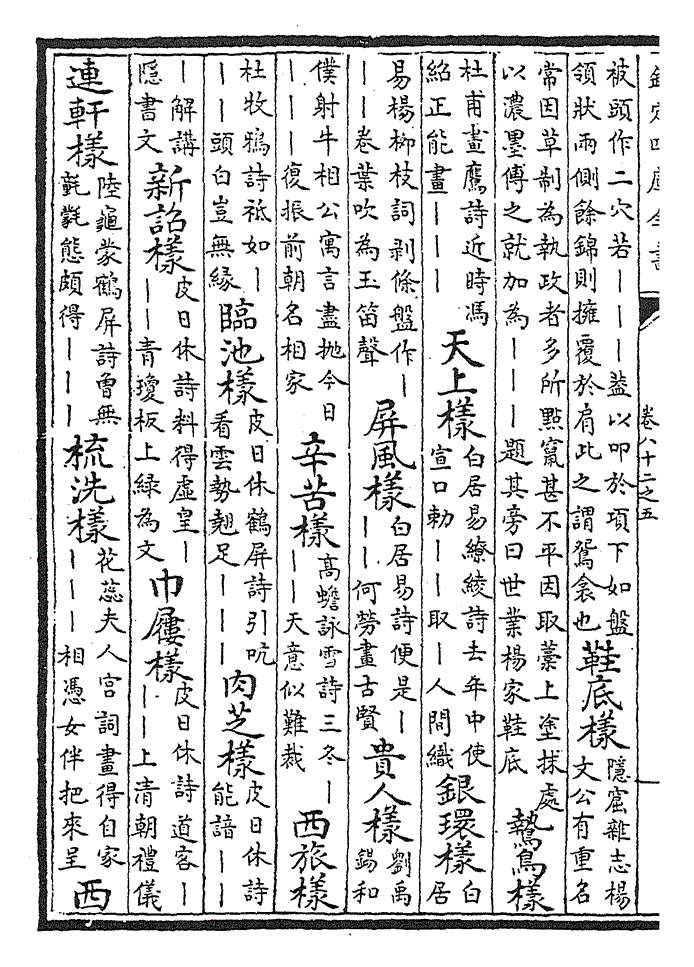 欽定四庫全書
卷八十二之五
被頭作二穴若｜｜｜蓋以叩於項下如盤
領狀兩側餘錦則擁覆於肩此之謂鴛衾也
鞋底樣
隱窟雜志楊
文公有重名
常因草制為執政者多所點竄甚不平因取藁上塗抹處
以濃墨傅之就加為｜｜｜題其旁曰世業楊家鞋底
鷙鳥樣
杜甫畫鷹詩近時馮
紹正能畫｜｜｜
天上樣
白居易繚綾詩去年中使
宣口勅｜｜取｜人間織
銀環樣
白
居
易楊柳枝詞剥條盤作｜
｜｜卷葉吹為玉笛聲
屏風樣
白居易詩便是｜
｜｜何勞畫古賢
貴人樣
劉禹
錫和
僕射牛相公寓言盡拋今日
｜｜｜復振前朝名相家
辛苦樣
高蟾詠雪詩三冬｜
｜｜天意似難裁
西旅樣
杜牧鴉詩祗如｜
｜｜頭白豈無緣
臨池樣
皮日休鶴屏詩引吭
看雲勢翹足｜｜｜
肉芝樣
皮日休詩
能諳｜｜
｜解講
隱書文
新詔樣
皮日休詩料得虛皇｜
｜｜青瓊板上綠為文
巾屨樣
皮日休詩道客｜
｜｜上清朝禮儀
連軒樣
陸龜蒙鶴屏詩曾無
氃氋態頗得｜｜｜
梳洗樣
花蕊夫人宮詞畫得自家
｜｜｜相憑女伴把來呈
西